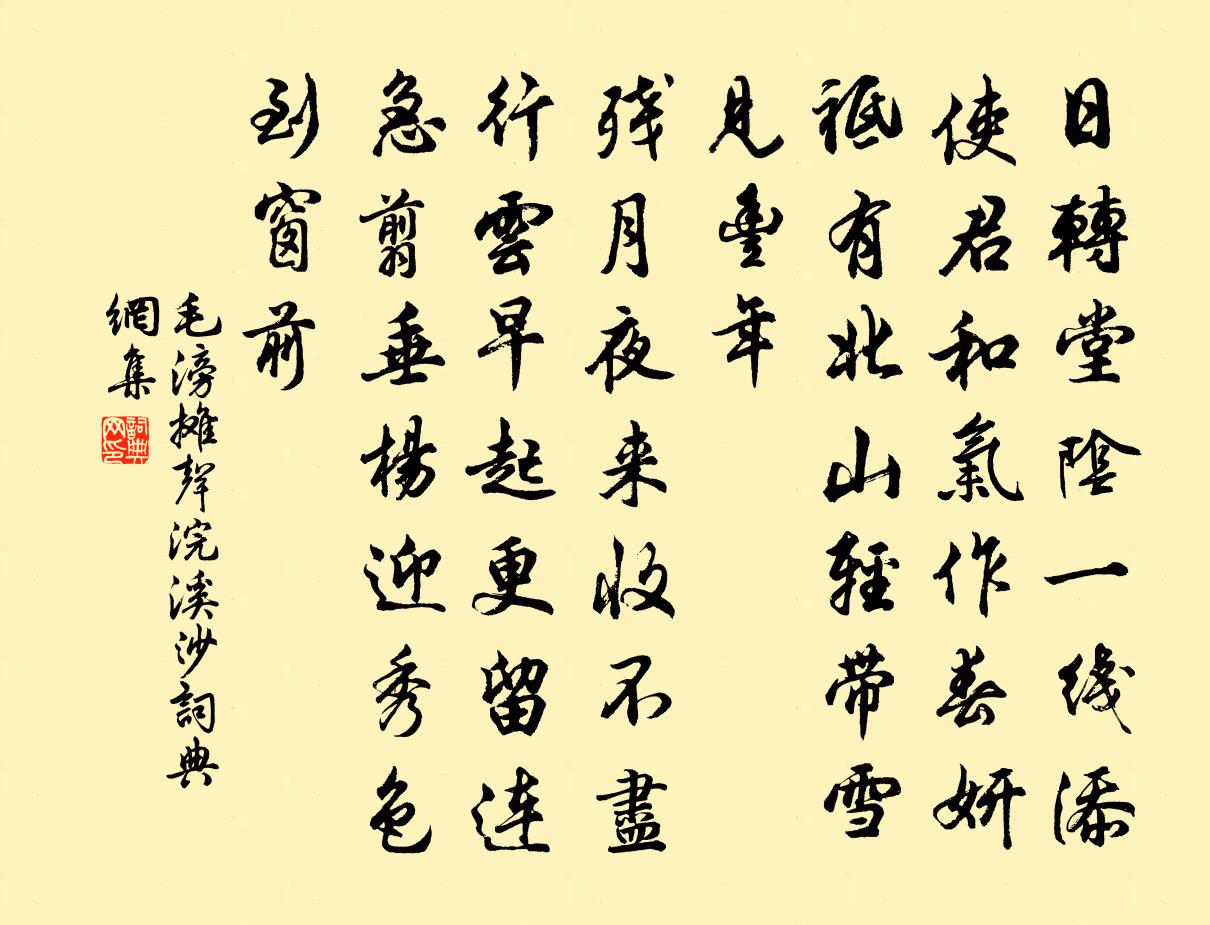 日轉堂陰一线添
使君和氣作春妍
祗有北山輕带雪
見豊年
残月夜来收不盡
行雲早起更留連
急剪垂楊迎秀色
到窗前
毛滂摊聲浣溪沙詞典
網集
詞典網印